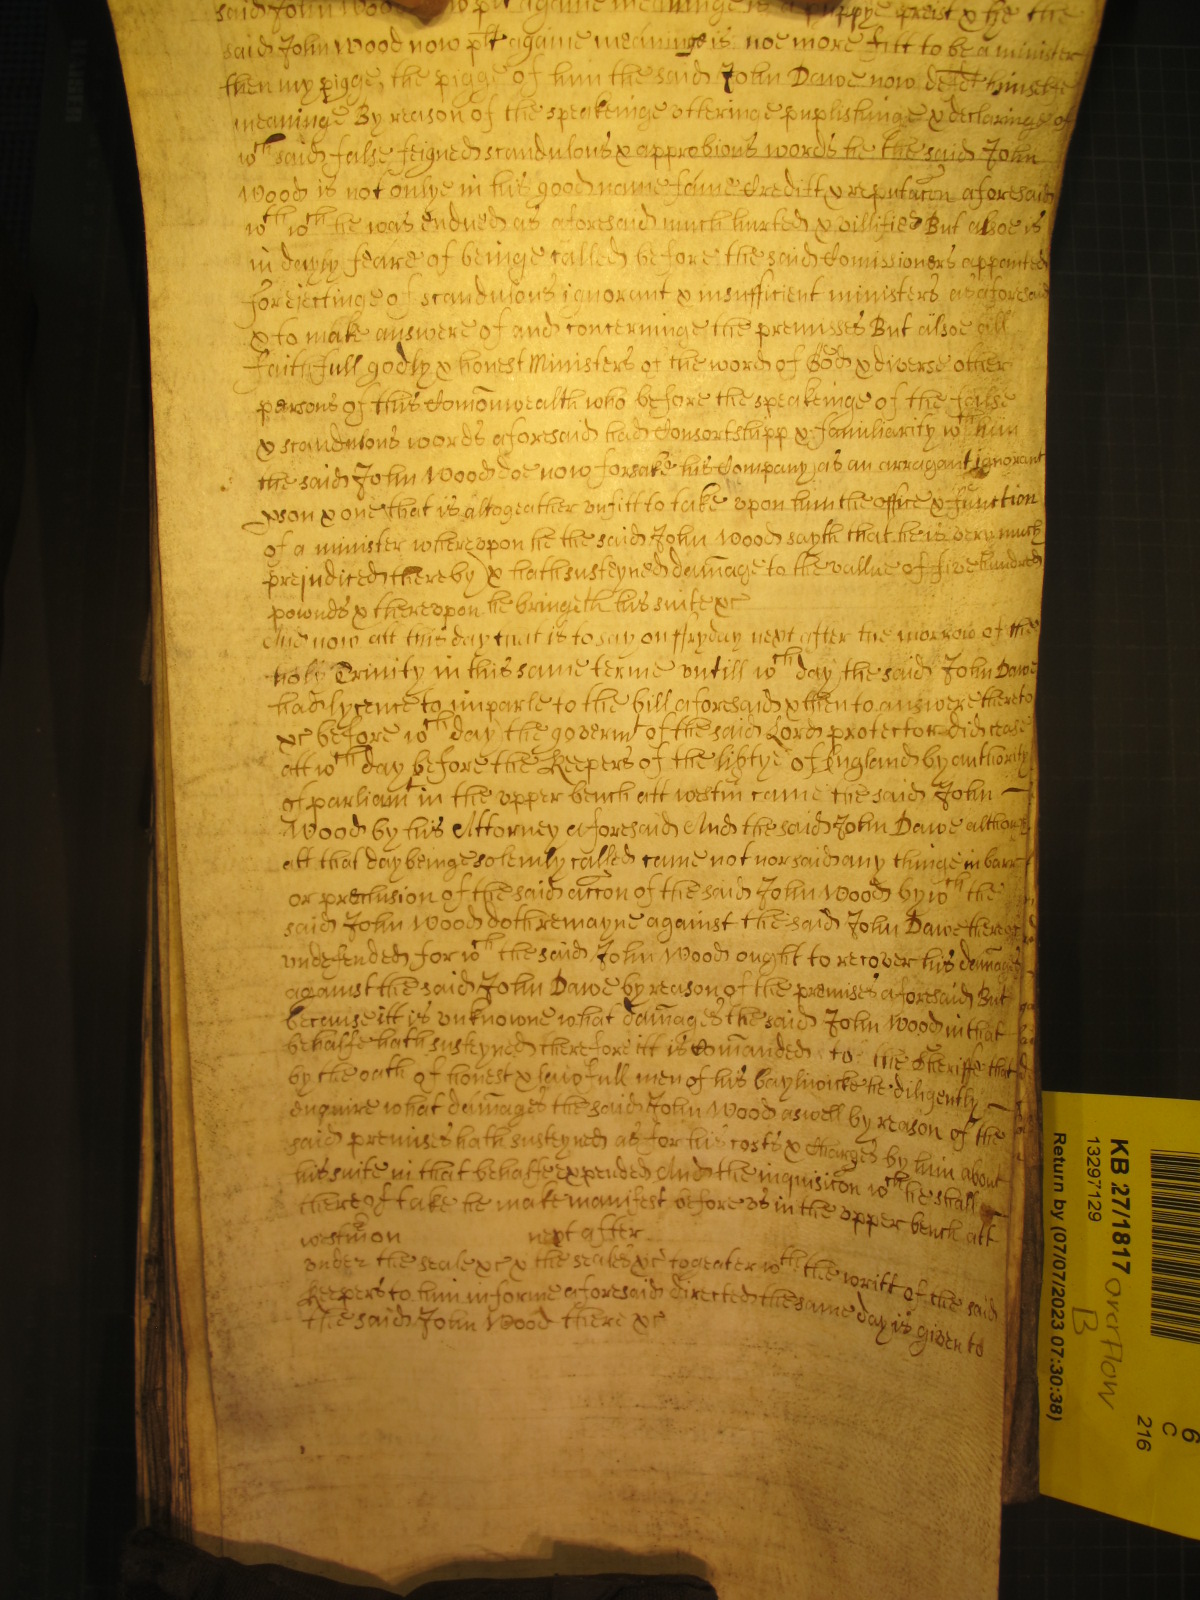 said John Wood now plt againe meaninge is a puppye preist & he the
said John Wood now plt againe meaninge is noe more fitt to be a minister
then my pigge, the pigge of him the said John Dawe now defdt himselfe
meaninge By reason of the speakeinge utteringe puplishinge & declaringe of
wch said false feigned scandulous & approbious words he the said John
Wood is not onlye in his good name fame Creditt & reputacon aforesaid
wth wch he was endued as aforesaid much hurted & villified But alsoe is
in dayly feare of beinge called before the said Comissioners appointed
for ejectinge of scandulous ignorant & insufficient ministers as aforesaid
& to make answere of and concerninge the premisses But alsoe all
faithfull godly & honest Ministers of the word of God & diverse other
persons of this Comonwealth who before the speakeinge of the false
& scandulous words aforesaid had Consortshipp & familiarity wth him
the said John Wood doe now forsake his Company as an arragant ignorant
pson & one that is altogeather unfitt to take upon him the office & function
of a minister whereupon he the said John Wood sayth that he is very much
prejudiced thereby & hath susteyned damage to the vallue of five hundred
pownds & thereupon he bringeth his suite &c
And now att this day that is to say on ffryday next after the morrow of the
holy Trinity in this same terme untill wch day the said John Dawe
had lycence to imparle to the bill aforesaid & then to answere thereto
&c before wch day the governt of the said Lord protector did cease
att wch day before the Keepers of the libtye of England by authority
of parliamt in the upper bench att westm came the said John
Wood by his Attorney aforesaid And the said John Dawe although
att that day beinge solemly called came not nor said any thinge in barr
or preclusion of the said accon of the said John Wood by wch the
said John Wood doth remayne against the said John Dawe thereof
undefended for wch the said John Wood ought to recover his damages
against the said John Dawe by reason of the premises aforesaid But
because itt is unknowne what damages the said John Wood in that
behalfe hath susteyned therefore itt is Comanded to the Sheriffe that
by the oath of honest & lawfull men of his baylwicke he diligently
enquire what damages the said John Wood aswell by reason of the
said premises hath susteyned as for his costs & charges by him about
his suite in that behalfe expended And the inquisicon wch he shall
thereof take he make manifest before us in the upper bench att
westm on next after
under the seale &c & the seales &c togeater wth the writt of the said
Keepers to him in forme aforesaid directed the same day is given to
the said John Wood there &c
KB 27/1817
13297129
Return by (07/07/2023 07:30:38)
overflow
B
6
C
216